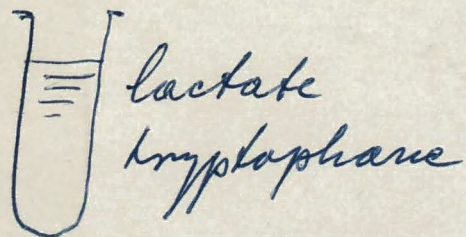 lactate
tryptophane